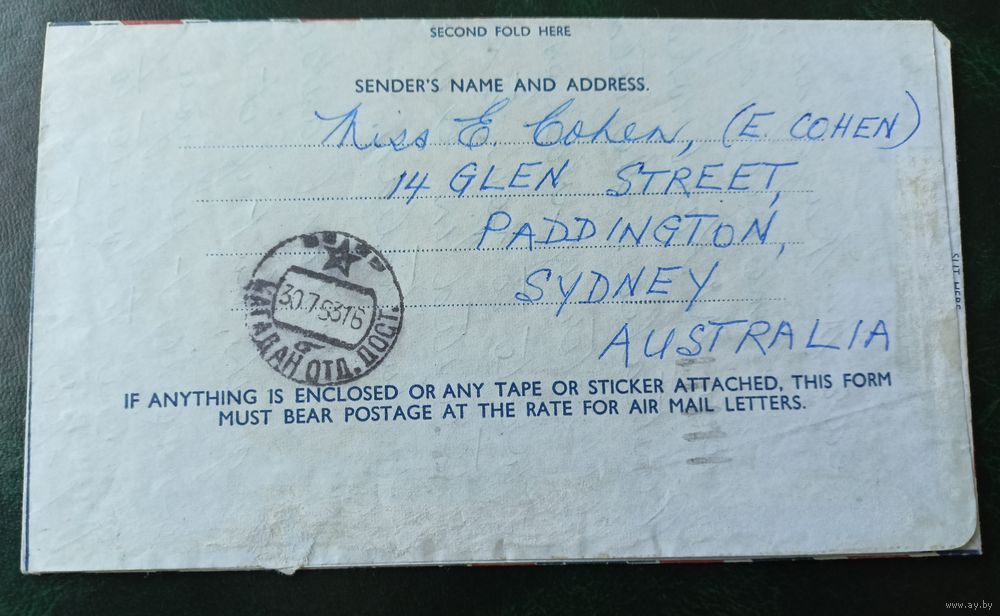 SECOND FOLD HERE
SENDER'S NAME AND ADDRESS.
Miss E. Cohen, (E. COHEN)
14 GLEN STREET,
PADDINGTON,
SYDNEY
AUSTRALIA
30.7.
МАГАДАН ОТД. ДОСТ.
SLIT HERE
IF ANYTHING IS ENCLOSED OR ANY TAPE OR STICKER ATTACHED, THIS FORM
MUST BEAR POSTAGE AT THE RATE FOR AIR MAIL LETTERS.
www.ay.by